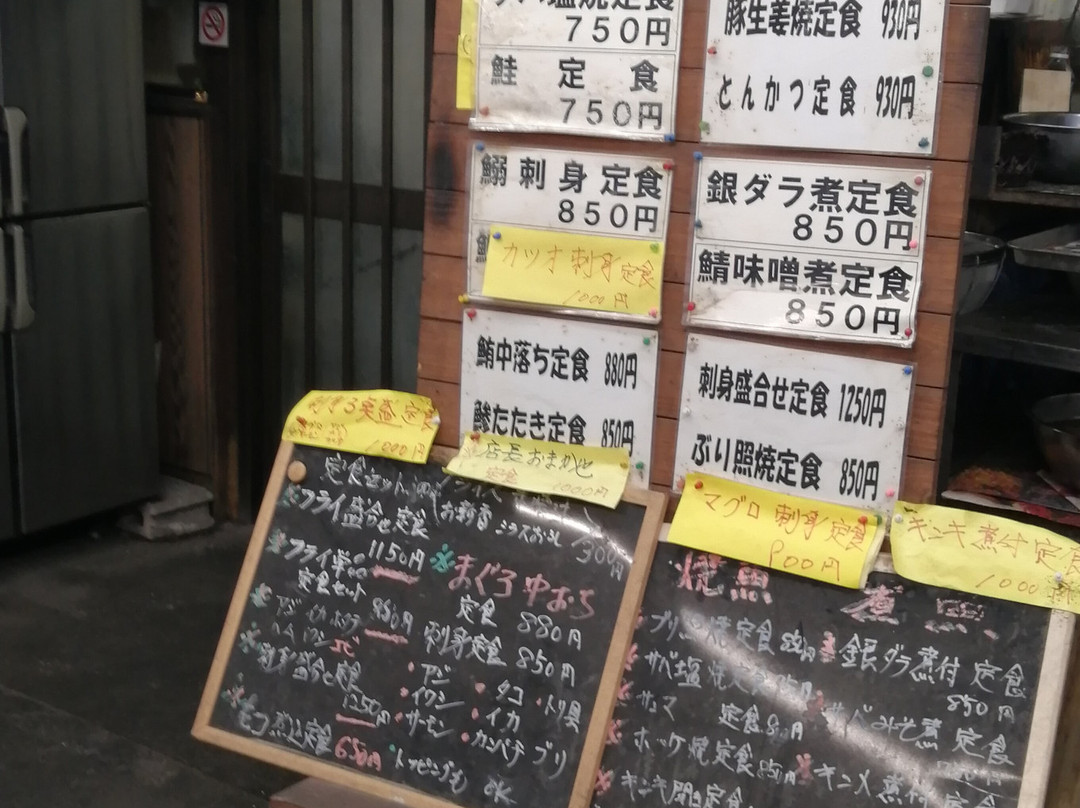 塩焼定食
750円
鮭定食
750円
豚生姜焼定食 930円
とんかつ定食 930円
鰯刺身定食
850円
カツオ刺身定食
1000円
銀ダラ煮定食
850円
鯖味噌煮定食
850円
鮪中落ち定食 880円
鯵たたき定食 850円
刺身盛合せ定食 1250円
ぶり照焼定食 850円
定食
1000円
店長おまかせ
定食 1000円
マグロ刺身定食
900円
キンキ煮付定食
1000
定食セット
お新香
300円
フライ盛合せ定食
1150円
定食セット
850円
刺身盛合せ定食
1250円
モツ煮込定食 650円
トッピングも OK
まぐろ中おち
定食 880円
刺身定食 850円
アジ
イワシ
サーモン
タコ
イカ
カンパチ
ブリ
焼魚
ブリ照焼定食
サバ塩焼定食
サンマ 定食
ホッケ焼定食
キンキ開き定食
煮魚
銀ダラ煮付定食
850円
サバみそ煮定食
キンメ煮付定食